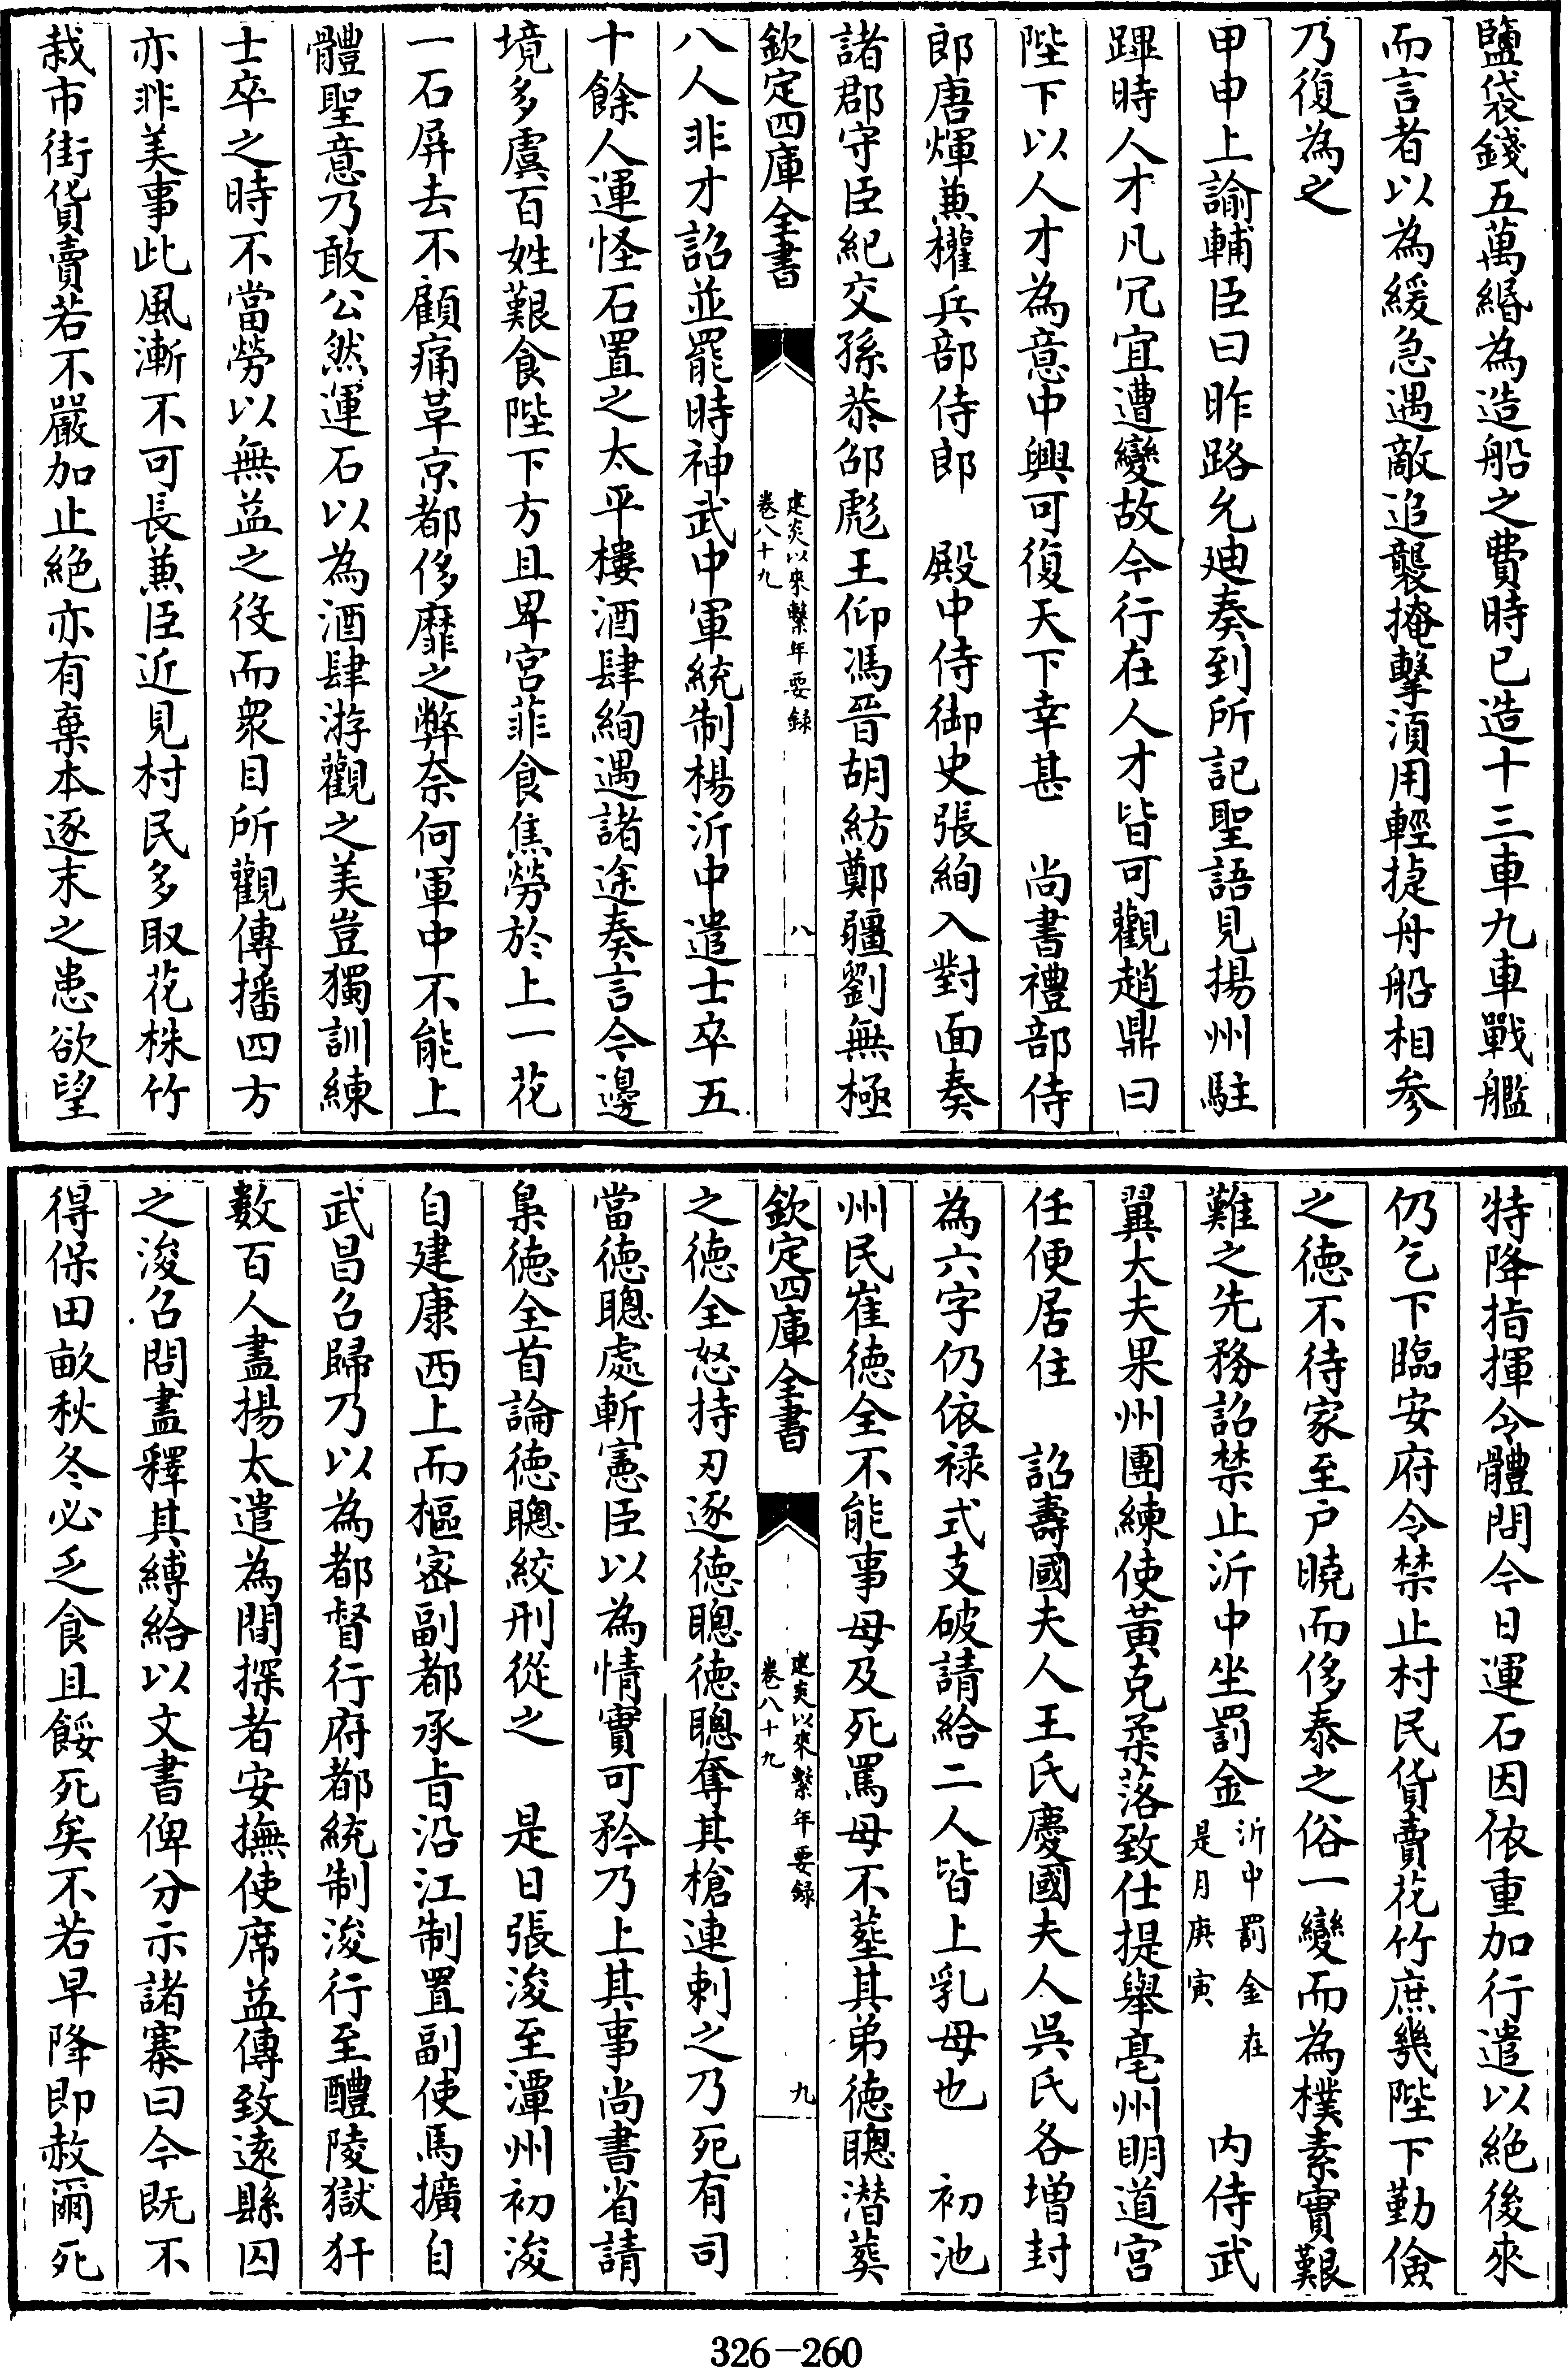 鹽袋錢五萬緡為造船之費時已造十三車九車戰艦
而言者以為緩急遇敵追襲掩擊須用輕捷舟船相参
乃復為之
甲申上諭輔臣曰昨路允廸奏到所記聖語見揚州駐
蹕時人才凡冗宜遭變故今行在人才皆可觀趙鼎曰
陛下以人才為意中興可復天下幸甚　尚書禮部侍
郎唐煇兼權兵部侍郎　殿中侍御史張絢入對面奏
諸郡守臣紀交孫恭邵彪王仰馮晉胡紡鄭疆劉無極
欽定四庫全書
建炎以來繫年要録
卷八十九
八
八人非才詔並罷時神武中軍統制楊沂中遣士卒五
十餘人運怪石置之太平樓酒肆絢遇諸途奏言今邊
境多虞百姓艱食陛下方且卑宮菲食焦勞於上一花
一石屏去不顧痛革京都侈靡之弊奈何軍中不能上
體聖意乃敢公然運石以為酒肆游觀之美豈獨訓練
士卒之時不當勞以無益之役而衆目所觀傳播四方
亦非美事此風漸不可長兼臣近見村民多取花株竹
栽市街貨賣若不嚴加止絶亦有棄本逐末之患欲望
特降指揮令體問今日運石因依重加行遣以絶後來
仍乞下臨安府令禁止村民貨賣花竹庶幾陛下勤儉
之德不待家至户曉而侈泰之俗一變而為樸素實艱
難之先務詔禁止沂中坐罰金沂中罰金在是月庚寅　内侍武
翼大夫果州團練使黄克柔落致仕提舉亳州明道宮
任便居住　詔壽國夫人王氏慶國夫人吳氏各增封
為六字仍依禄式支破請給二人皆上乳母也　初池
州民崔德全不能事母及死罵母不塟其弟德聰潜葬
欽定四庫全書
建炎以來繫年要録
卷八十九
九
之德全怒持刃逐德聰德聰奪其槍連刺之乃死有司
當德聰處斬憲臣以為情實可矜乃上其事尚書省請
梟德全首論德聰絞刑從之　是日張浚至潭州初浚
自建康西上而樞密副都承旨沿江制置副使馬擴自
武昌召歸乃以為都督行府都統制浚行至醴陵獄犴
數百人盡揚太遣為間探者安撫使席益傳致遠縣囚
之浚召問盡釋其縛給以文書俾分示諸寨曰今既不
得保田畝秋冬必乏食且餒死矣不若早降即赦爾死
326-260